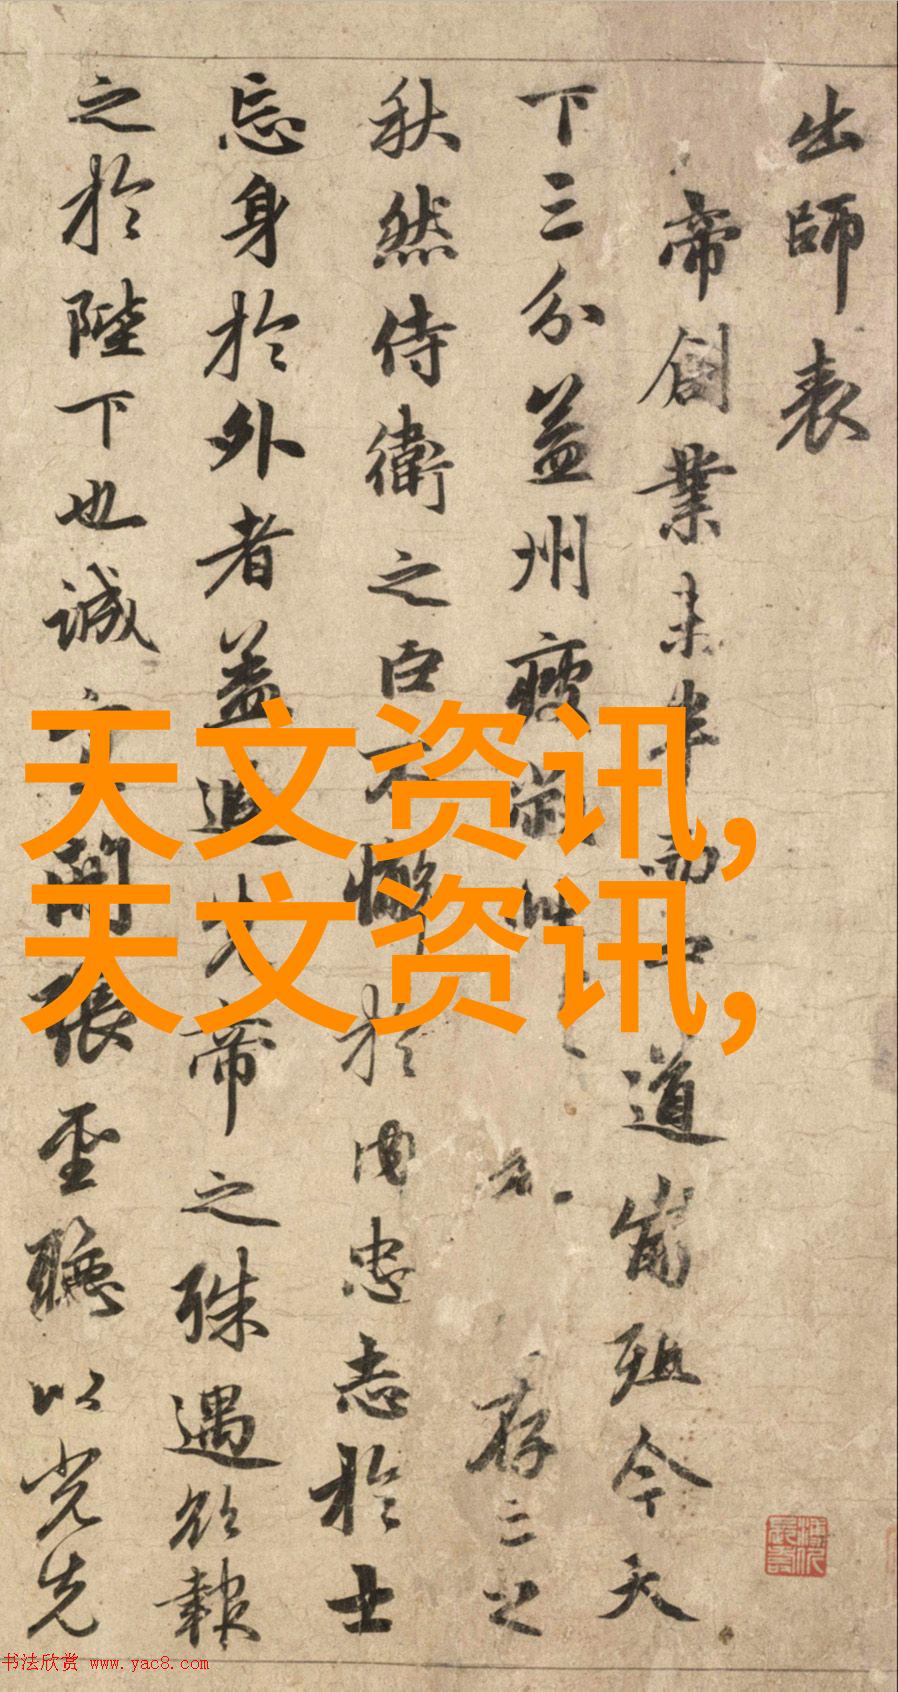 出師表
帝創業未半而中道崩殂今天
下三分益州疲敝此 存亡之
秋然侍衛之臣不懈於內忠志於士
忘身於外者蓋追先帝之殊遇欲報
之於陛下也誠宜開張聖聽以光先
天文资讯,
天文资讯,
书法欣赏 www.yac8.com